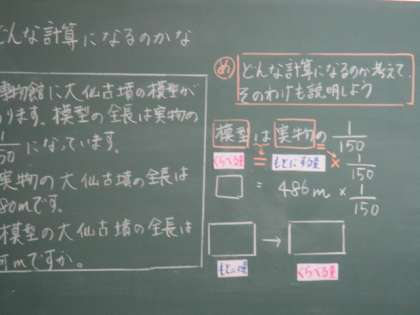 どんな計算になるのかな
博物館に大仙古墳の模型が
ります。模型の全長は実物の
1/150 になっています。
実物の大仙古墳の全長は
86mです。
模型の大仙古墳の全長は
何mですか。
め どんな計算になるのか考えて、
そのわけも説明しよう
模型 は 実物 の 1/150
くらべる量 = もとにする量 × 1/150
□ = 486m × 1/150
□ → □
もとにする量 くらべる量